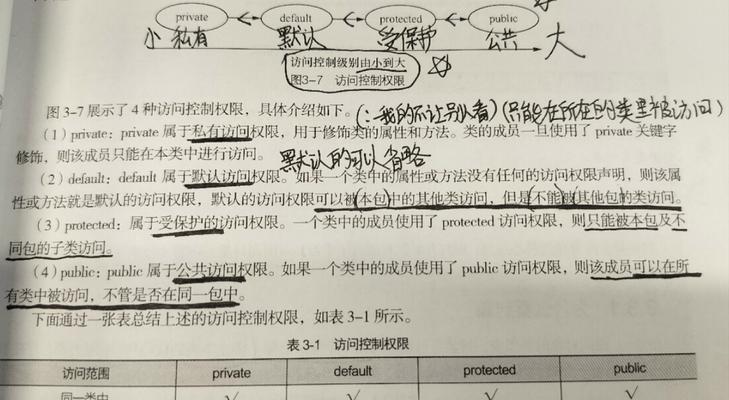 private default protected public
小 私有 默认 受保护 公共 大
访问控制级别由小到大
图3-7 访问控制权限
图 3-7 展示了 4 种访问控制权限，具体介绍如下。(:我的不让别人看)(只能在所在的类里被访问)
（1）private：private 属于私有访问权限，用于修饰类的属性和方法。类的成员一旦使用了 private 关键字
修饰，则该成员只能在本类中进行访问。 默认的可以省略
（2）default：default 属于默认访问权限。如果一个类中的属性或方法没有任何的访问权限声明，则该属
性或方法就是默认的访问权限，默认的访问权限可以被本包中的其他类访问，但是不能被其他包的类访问。
（3）protected：属于受保护的访问权限。一个类中的成员使用了 protected 访问权限，则只能被本包及不
同包的子类访问。
（4）public：public 属于公共访问权限。如果一个类中的成员使用了 public 访问权限，则该成员可以在所
有类中被访问，不管是否在同一包中。
下面通过一张表总结上述的访问控制权限，如表 3-1 所示。
表 3-1 访问控制权限
访问范围 private default protected public
同一类中 √ √ √ √